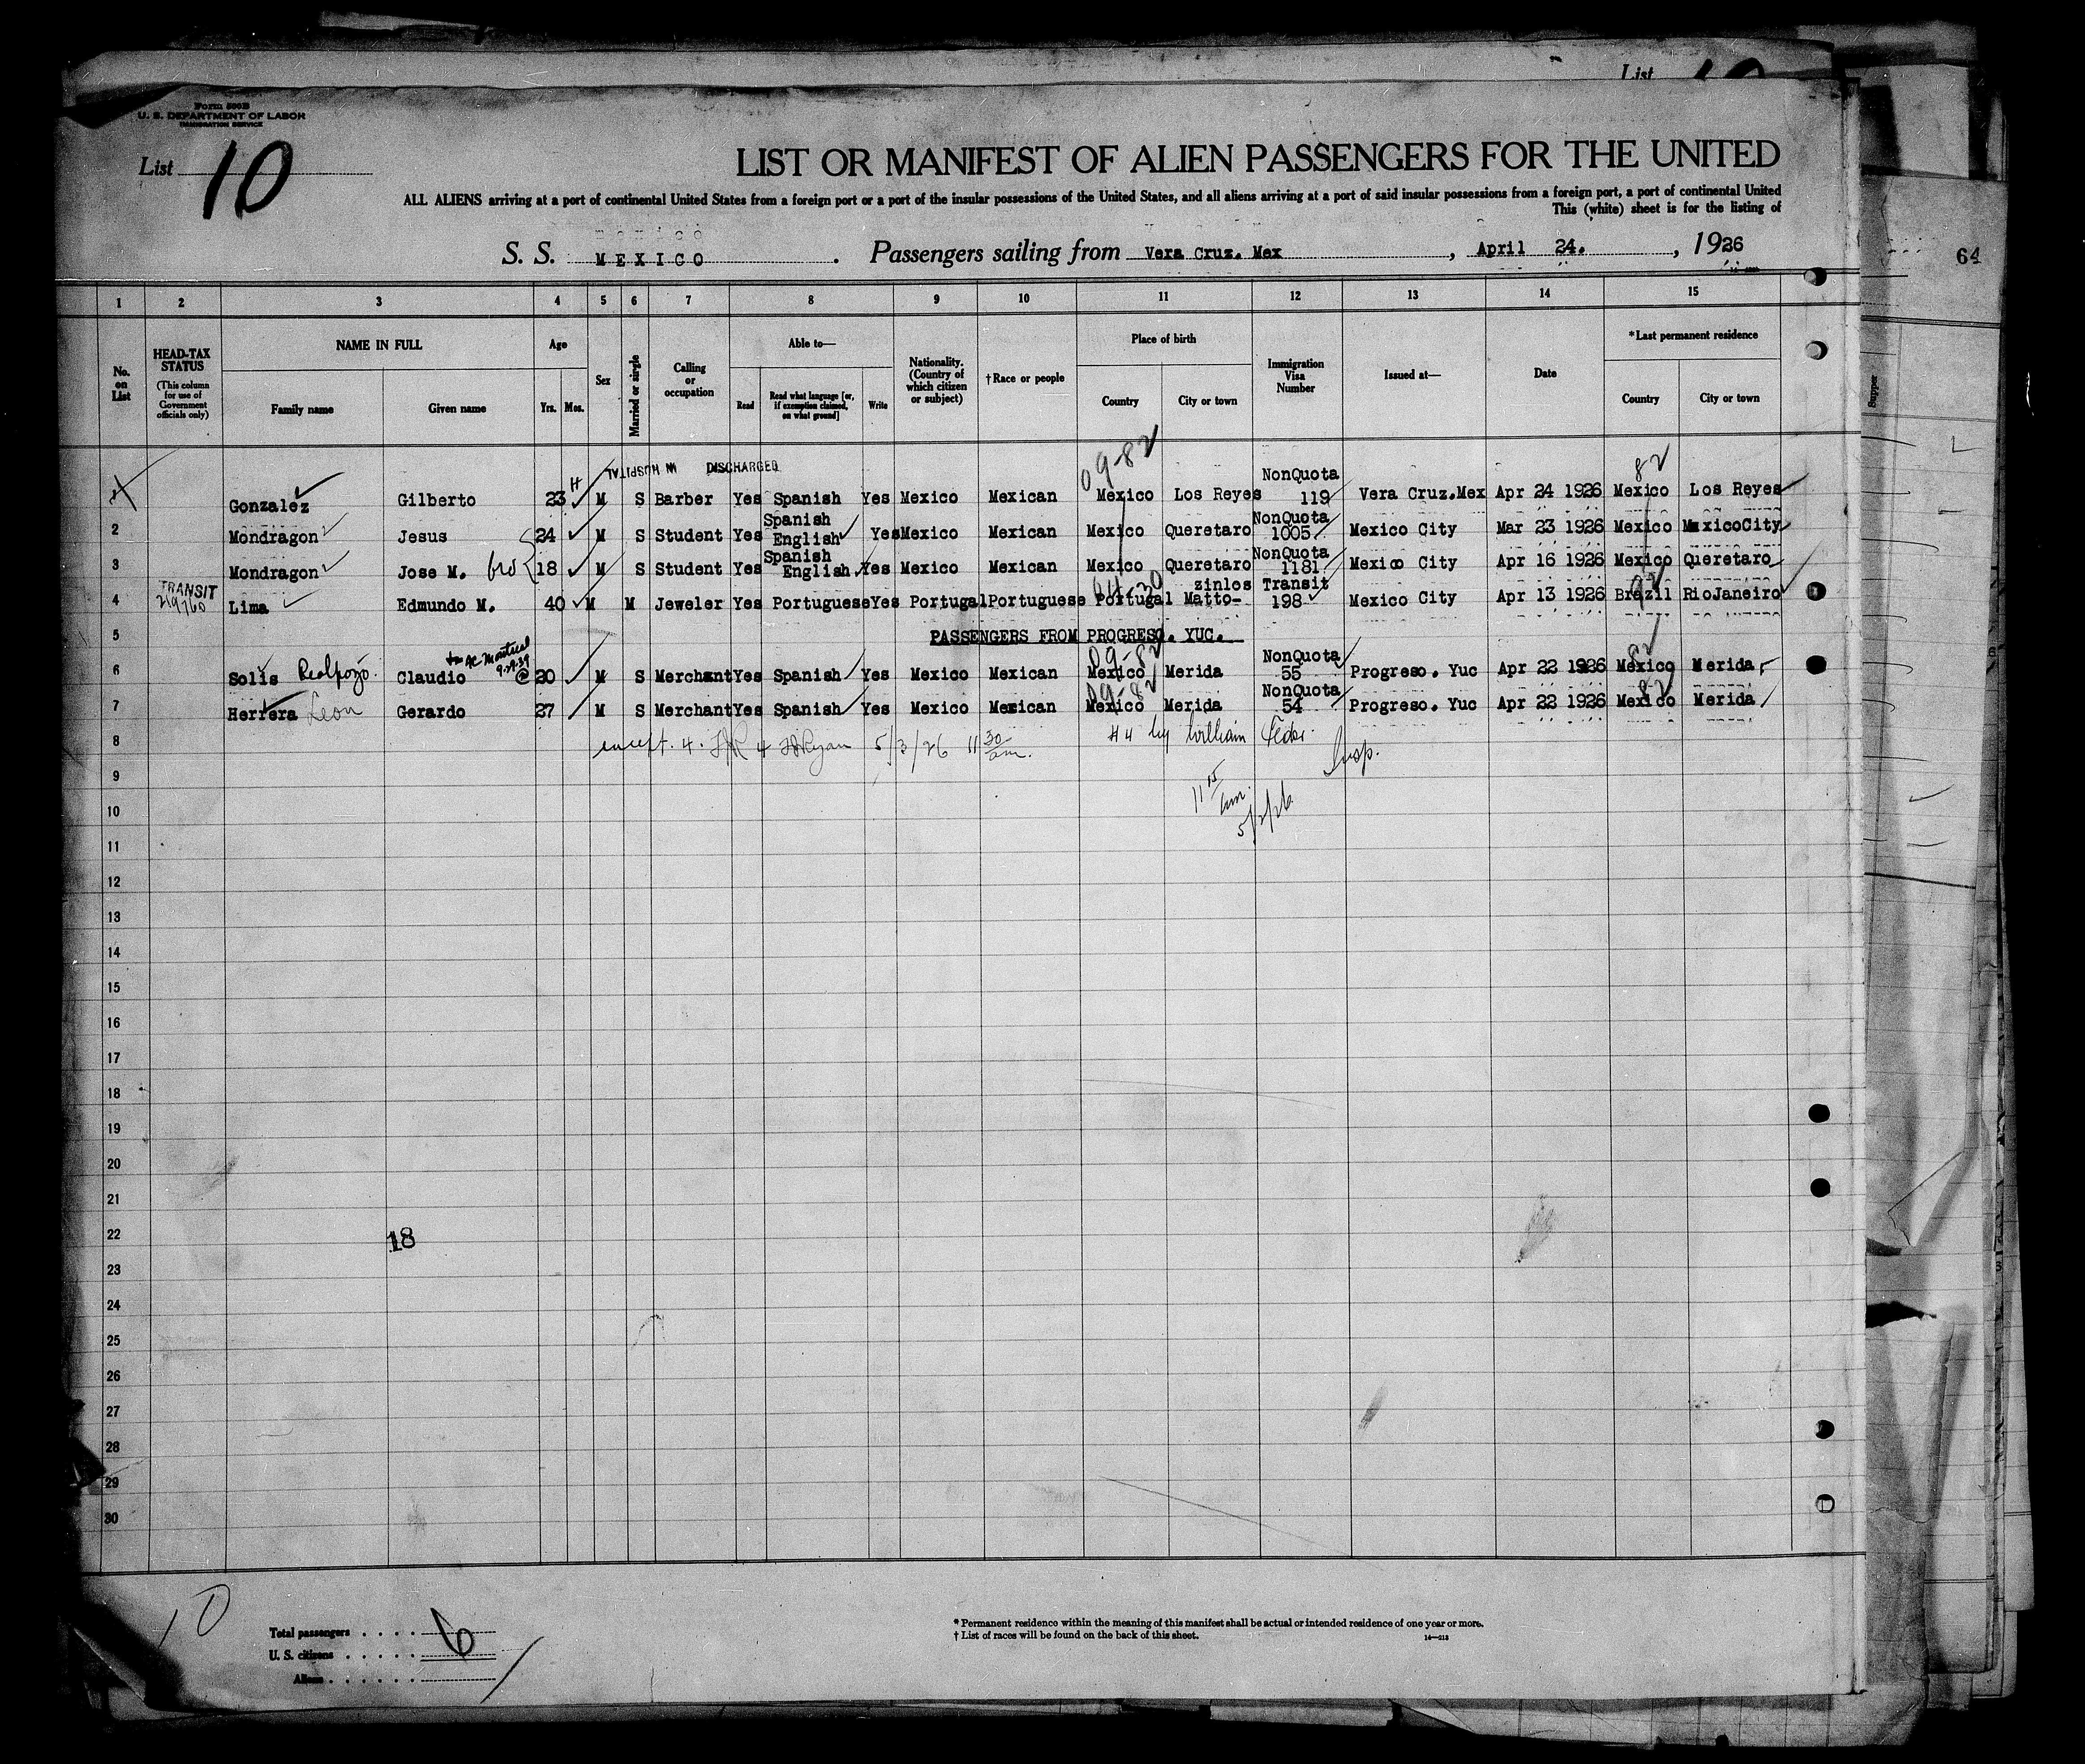 List 10
Form 500B
U. S. DEPARTMENT OF LABOR
IMMIGRATION SERVICE
List 10
LIST OR MANIFEST OF ALIEN PASSENGERS FOR THE UNITED
ALL ALIENS arriving at a port of continental United States from a foreign port or a port of the insular possessions of the United States, and all aliens arriving at a port of said insular possessions from a foreign port, a port of continental United
This (white) sheet is for the listing of
S. S. MEXICO. Passengers sailing from Vera Cruz. Mex, April 24., 1926
64
1 2 3 4 5 6 7 8 9 10 11 12 13 14 15
No. on List
HEAD-TAX STATUS (This column for use of Government officials only)
NAME IN FULL Family name Given name
Age Yrs. Mos.
Sex
Married or single
Calling or occupation
Able to— Read Read what language [or, if exemption claimed, on what ground] Write
Nationality. (Country of which citizen or subject)
†Race or people
Place of birth Country City or town
Immigration Visa Number
Issued at—
Date
*Last permanent residence Country City or town
Supper
IN HOSPITAL DISCHARGED
09-82 82
Gonzalez Gilberto 23 H M S Barber Yes Spanish Yes Mexico Mexican Mexico Los Reyes NonQuota 119 Vera Cruz.Mex Apr 24 1926 Mexico Los Reyes
2 Mondragon Jesus 24 M S Student Yes Spanish English Yes Mexico Mexican Mexico Queretaro NonQuota 1005 Mexico City Mar 23 1926 Mexico MexicoCity
3 Mondragon Jose M. bro 18 M S Student Yes Spanish English Yes Mexico Mexican Mexico Queretaro NonQuota 1181 Mexico City Apr 16 1926 Mexico Queretaro
TRANSIT 219760
4 Lima Edmundo M. 40 M M Jeweler Yes Portuguese Yes Portugal Portuguese Portugal zinlos Matto- Transit 198 Mexico City Apr 13 1926 Brazil RioJaneiro
5 PASSENGERS FROM PROGRESO. YUC.
09-82 82
6 Solis Claudio 20 M S Merchant Yes Spanish Yes Mexico Mexican Mexico Merida NonQuota 55 Progreso. Yuc Apr 22 1926 Mexico Merida
09-82 82
7 Herrera Leon Gerardo 27 M S Merchant Yes Spanish Yes Mexico Mexican Mexico Merida NonQuota 54 Progreso. Yuc Apr 22 1926 Mexico Merida
8 except. 4. Ryan 5/3/26 11 30 am. #4 by William Insp.
9
11 15 am
10
5/3/26
11
12
13
14
15
16
17
18
19
20
21
22 18
23
24
25
26
27
28
29
30
10
Total passengers . . . . 6
U. S. citizens . . . . .
Aliens . . . . . .
* Permanent residence within the meaning of this manifest shall be actual or intended residence of one year or more.
† List of races will be found on the back of this sheet. 14—213